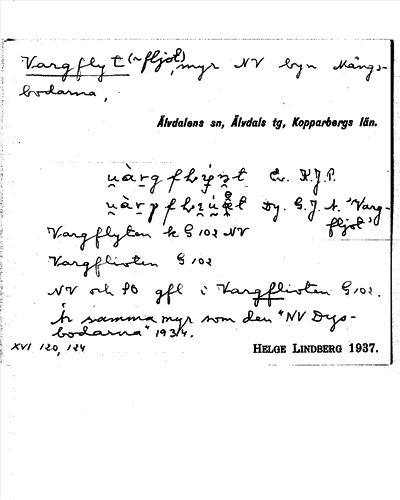 Vargflyt (~ fljot), myr NV byn Mångs-
bodarna,
Älvdalens sn, Älvdals tg, Kopparbergs län.
Ev. H.J.P.
Dy. G.J.A. "Varg-
fljot"
Vargflyten k G 102 NV
Vargflioten G 102
NV och SO gfl i Vargflioten G 102.
Är samma myr som den "NV Dys-
bodarna" 1934.
XVI 120, 124
HELGE LINDBERG 1937.